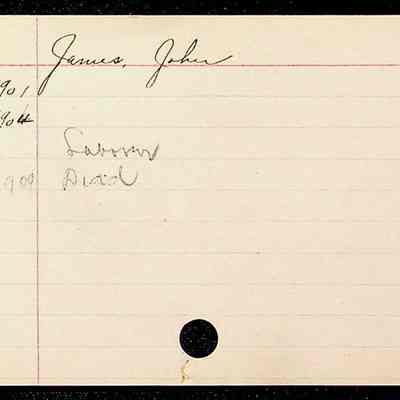 James, John
901
904
Laborer
909 Died